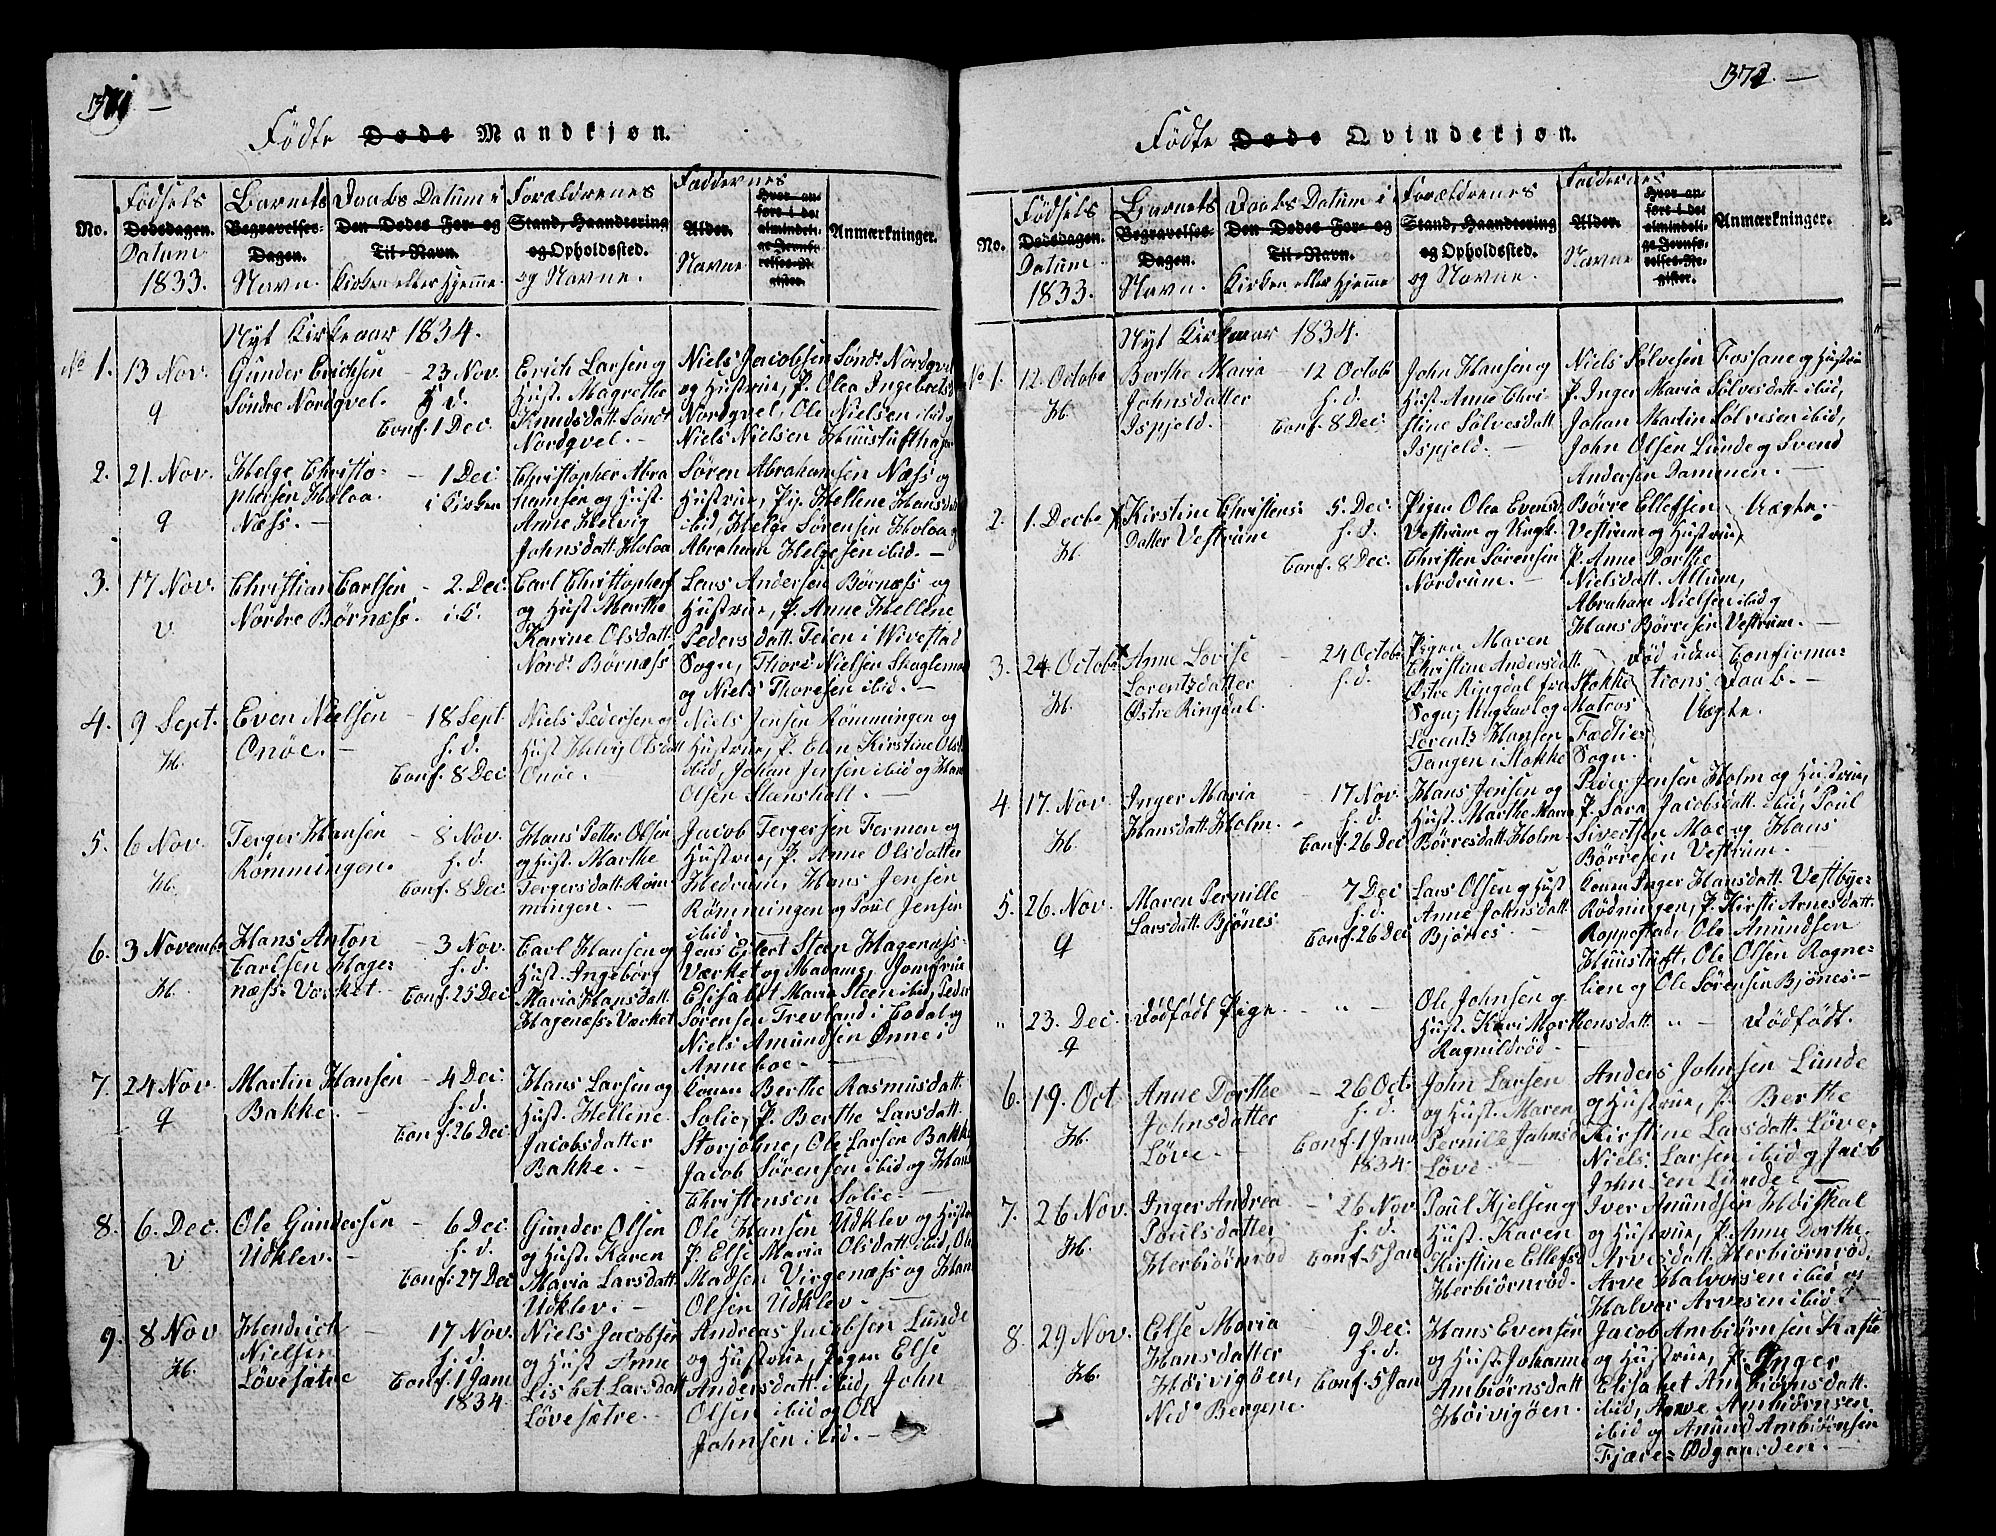 371 —
Fødte Døde Mandkjøn.
No.
Fødsels
Dødsdagen.
Datum
1833.
Barnets
Begravelses-
Dagen.
Navn.
Daabs Datum i
Den Dødes For- og
Til-Navn.
Kirken eller Hjemme
Forældrenes
Stand, Haandtering
og Opholdssted.
og Navne.
Faddernes
Alder.
Navne
Hvor an-
ført i det
almindeli-
ge Jevnfø-
relses-Re-
gister.
Anmærkninger.
Nyt Kirkeaar 1834.
No 1.
13 Nov.
q
Gunder Erichsen
Søndre Nordqvel.
— 23 Nov.
h. d.
Conf. 1 Dec.
Erich Larsen og
Hust. Magrethe
Knudsdatt. Søndr
Nordqvel. —
Niels Jacobsen Sønd: Nordqvel
og Hustrue, P. Olea Ingebretsd
Nordqvel, Ole Nielsen ibid og
Niels Nielsen Huustufthagen
2.
21 Nov.
q
Helge Christo-
phersen Holoa
Næss. —
— 1 Dec
i Kirken
Christopher Abra
hamsen og Hust.
Anne Helvig
Johnsdatt. Holoa
Søren Abrahamsen Næss og
Hustrue, Pig. Hellene Hansdatt
ibid, Helge Sørensen Holoa og
Abraham Helgesen ibid. —
3.
17 Nov.
v
Christian Carlsen
Nordre Børnæss.
— 2. Dec.
i K.
Carl Christophers
og Hust. Marthe
Karine Olsdatt.
Nord: Børnæss
Lars Andersen Børnæss og
Hustrue, P. Anne Hellene
Pedersdatt. Teien i Wivestad
Sogn, Thore Nielsen Skaglemoe
og Niels Thoresen ibid. —
4.
9 Sept.
H.
Even Nielsen
Onöe. —
— 18 Sept
h. d.
Conf. 8 Dec
Niels Pedersen og
Hust Helvig Olsdatt
Onöe. —
Niels Jensen Rømmingen og
Hustrue, P. Elen Kirstine Olsd
ibid, Johan Jensen ibid og Hans
Olsen Steensholt. —
5.
6 Nov.
H.
Terger Hansen
Rømmingen.
— 8 Nov.
h. d.
Conf. 8 Dec.
Hans Petter Olsen
og Hust. Marthe
Tergersdatt. Røm
mingen. —
Jacob Tergersen Fermen og
Hustrue, P. Anne Olsdatter
Hedrum, Hans Jensen
Rømmingen og Poul Jensen
ibid —
6.
3 Novembr
H.
Hans Anton
Carlsen Hage-
næss: Værket.
— 3 Nov.
h. d.
Conf. 25 Dec
Carl Hansen og
Hust. Ingeborg
Maria Hansdatt.
Hagenæss: Værket
Jens Eilert Steen Hagenæss-
Værket og Madame, Jomfrue
Elisabet Maria Steen ibid, Peder
Sørensen Trevland i Codal og
Niels Amundsen Ønne i
Anneboe —
7.
24 Nov
q
Martin Hansen
Bakke. —
— 4 Dec.
h. d.
Conf. 26 Dec
Hans Larsen og
Hust. Hellene
Jacobsdatter
Bakke. —
Konen Berthe Rasmusdatt.
Solie, P. Berthe Larsdatt.
Storjolne, Ole Larsen Bakke
Jacob Sørensen ibid og Hans
Christensen Solie. —
8.
6. Dec.
v
Ole Gundersen
Udklev. —
— 6 Dec.
h. d.
Conf. 27 Dec
Gunder Olsen
og Hust. Karen
Maria Larsdatt.
Udklev. —
Ole Hansen Udklev og Hustr
P. Else Maria Olsdatt ibid, Ole
Madsen Virgenæss og Hans
Olsen Udklev. —
9.
8 Nov
H.
Hendrich
Nielsen
Løvesætre
— 17 Nov.
h. d.
Conf. 1 Jan
1834.
Niels Jacobsen
og Hust Anne
Lisbet Larsdatt
Løvesætre. —
Andreas Jacobsen Lunde
og Hustrue, Pigen Else
Andersdatt. ibid, John
Olsen ibid og Ole
Johnsen ibid. —
372. —
Fødte Døde Qvindekjøn.
No.
Fødsels
Dødsdagen.
Datum
1833.
Barnets
Begravelses-
Dagen.
Navn.
Daabs Datum i
Den Dødes For- og
Til-Navn.
Kirken eller Hjemme
Forældrenes
Stand, Haandtering
og Opholdssted.
og Navne.
Faddernes
Alder.
Navne
Hvor an-
ført i det
almindeli-
ge Jevnfø-
relses-Re-
gister.
Anmærkninger.
Nyt Kirkeaar 1834.
No 1.
12 Octobr
H.
Berthe Maria
Johnsdatter
Ispjeld.
— 12 Octob
h. d.
Conf. 8 Dec.
John Hansen og
Hust. Anne Chri-
stine Sølvesdatt
Ispjeld. —
Niels Sølvesen Fossane og Hustrue
P. Inger Maria Sølvesdatt ibid,
Johan Martin Sølvesen ibid,
John Olsen Lunde og Svend
Andersen Dammen. —
2.
1. Decbr
H.
Kirstine Christens:
Datter Vestrum
5. Dec.
h. d.
Conf. 8 Dec.
Pigen Olea Evensd.
Vestrum og Ungk.
Christen Sørensen
Nordrum. —
Børre Elleffsen
Vestrum og Hustrue,
P. Anne Dorthe
Nielsdatt. Allum,
Abraham Nielsen ibid og
Hans Børresen Vestrum. —
Uægte.
3.
24 Octobr
H.
Anne Lovise
Lorentzdatter
Østre Ringdal.
— 24 Octobr
h. d.
Pigen Maren
Christine Andersdatt.
Østre Ringdal fra Stokke
Sogn; Ungkarl og Matros
Lorentz Hansen Fædtie:
Tangen i Stokke Sogn.
— Død uden Confirma-
tions Daab. —
Uægte.
4
17. Nov.
H.
Inger Maria
Hansdatt. Holm.
— 17 Nov.
h. d.
Conf. 26 Dec
Hans Jensen og
Hust. Marthe Marie
Børresdatt. Holm
Peder Jensen Holm og Hustrue,
P. Sara Jacobsdatt. ibid, Poul
Sivertsen Moe og Hans
Børresen Vestrum. —
5.
26. Nov.
q
Maren Pernille
Larsdatt. Bjønes
7 Dec
h. d.
Conf. 26 Dec
Lars Olsen og Hust
Anne Johnsdatt.
Bjønes —
Konen Inger Hansdatt. Vestbye-
Rødningen, P. Kirsti Arnesdatt.
Roppestad, Ole Amundsen
Huustuft, Ole Olsen Ragne-
lien og Ole Sørensen Bjønes. —
"
23. Dec.
q
Dødfødt Pige
— " —
Ole Johnsen og
Hust. Kari Marthensdatt.
Ragnildrød. —
— " —
Dødfødt.
6.
19. Oct
H.
Anne Dorthe
Johnsdatter
Løve. —
— 26 Oct.
h. d.
Conf. 1 Jan
1834.
John Larsen
og Hust. Maren
Pernille Johnsd
Løve. —
Anders Johnsen Lunde
og Hustrue, P. Berthe
Kirstine Larsdatt. Løve,
Niels Larsen ibid og Jacob
Johnsen Lunde. —
7.
26 Nov.
H.
Inger Andrea
Poulsdatter
Herbiørnrød
— 26 Nov
h. d.
Conf. 5 Jan
Poul Kjelsen og
Hust. Karen
Kirstine Ellefsd
Herbiørnrød.
Iver Amundsen Høiskal
og Hustrue, P. Anne Dorthe
Arvesdatt. Herbiørnrød,
Arve Halvorsen ibid og
Halvor Arvesen ibid. —
8.
29 Nov.
H.
Else Maria
Hansdatter
Høivigøen,
Ned: Bergene.
9 Dec.
h. d.
Conf. 5 Jan
Hans Evensen
og Hust. Johanne
Ambiørnsdatt
Høivigøen.
Jacob Ambiørnsen Plaste
og Hustrue, P. Inger
Elisabet Ambiørnsdatt.
ibid, Arve Ambiørnsen
ibid og Amund Ambiørnsen
Fjære-Odgaarden. —